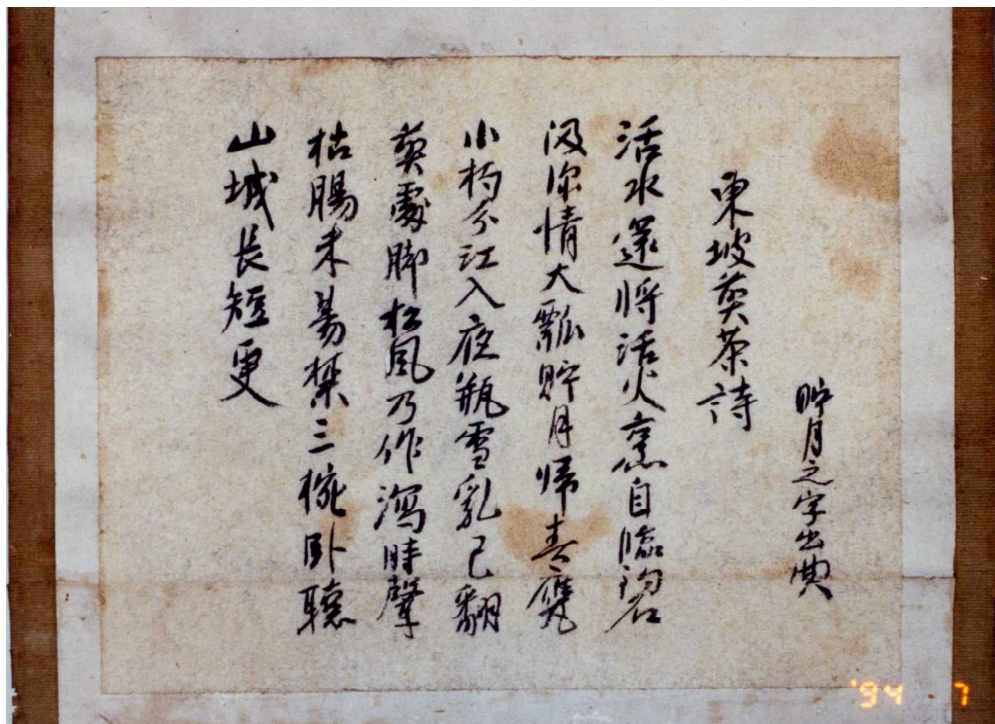 貯月之字出典
東坡煎茶詩
活水還将活火烹自臨釣石
汲深情大瓢貯月帰春甕
小杓分江入夜瓶雪乳已翻
煎處脚松風乃作瀉時聲
枯腸未易禁三椀臥聴
山城長短更
'94 7